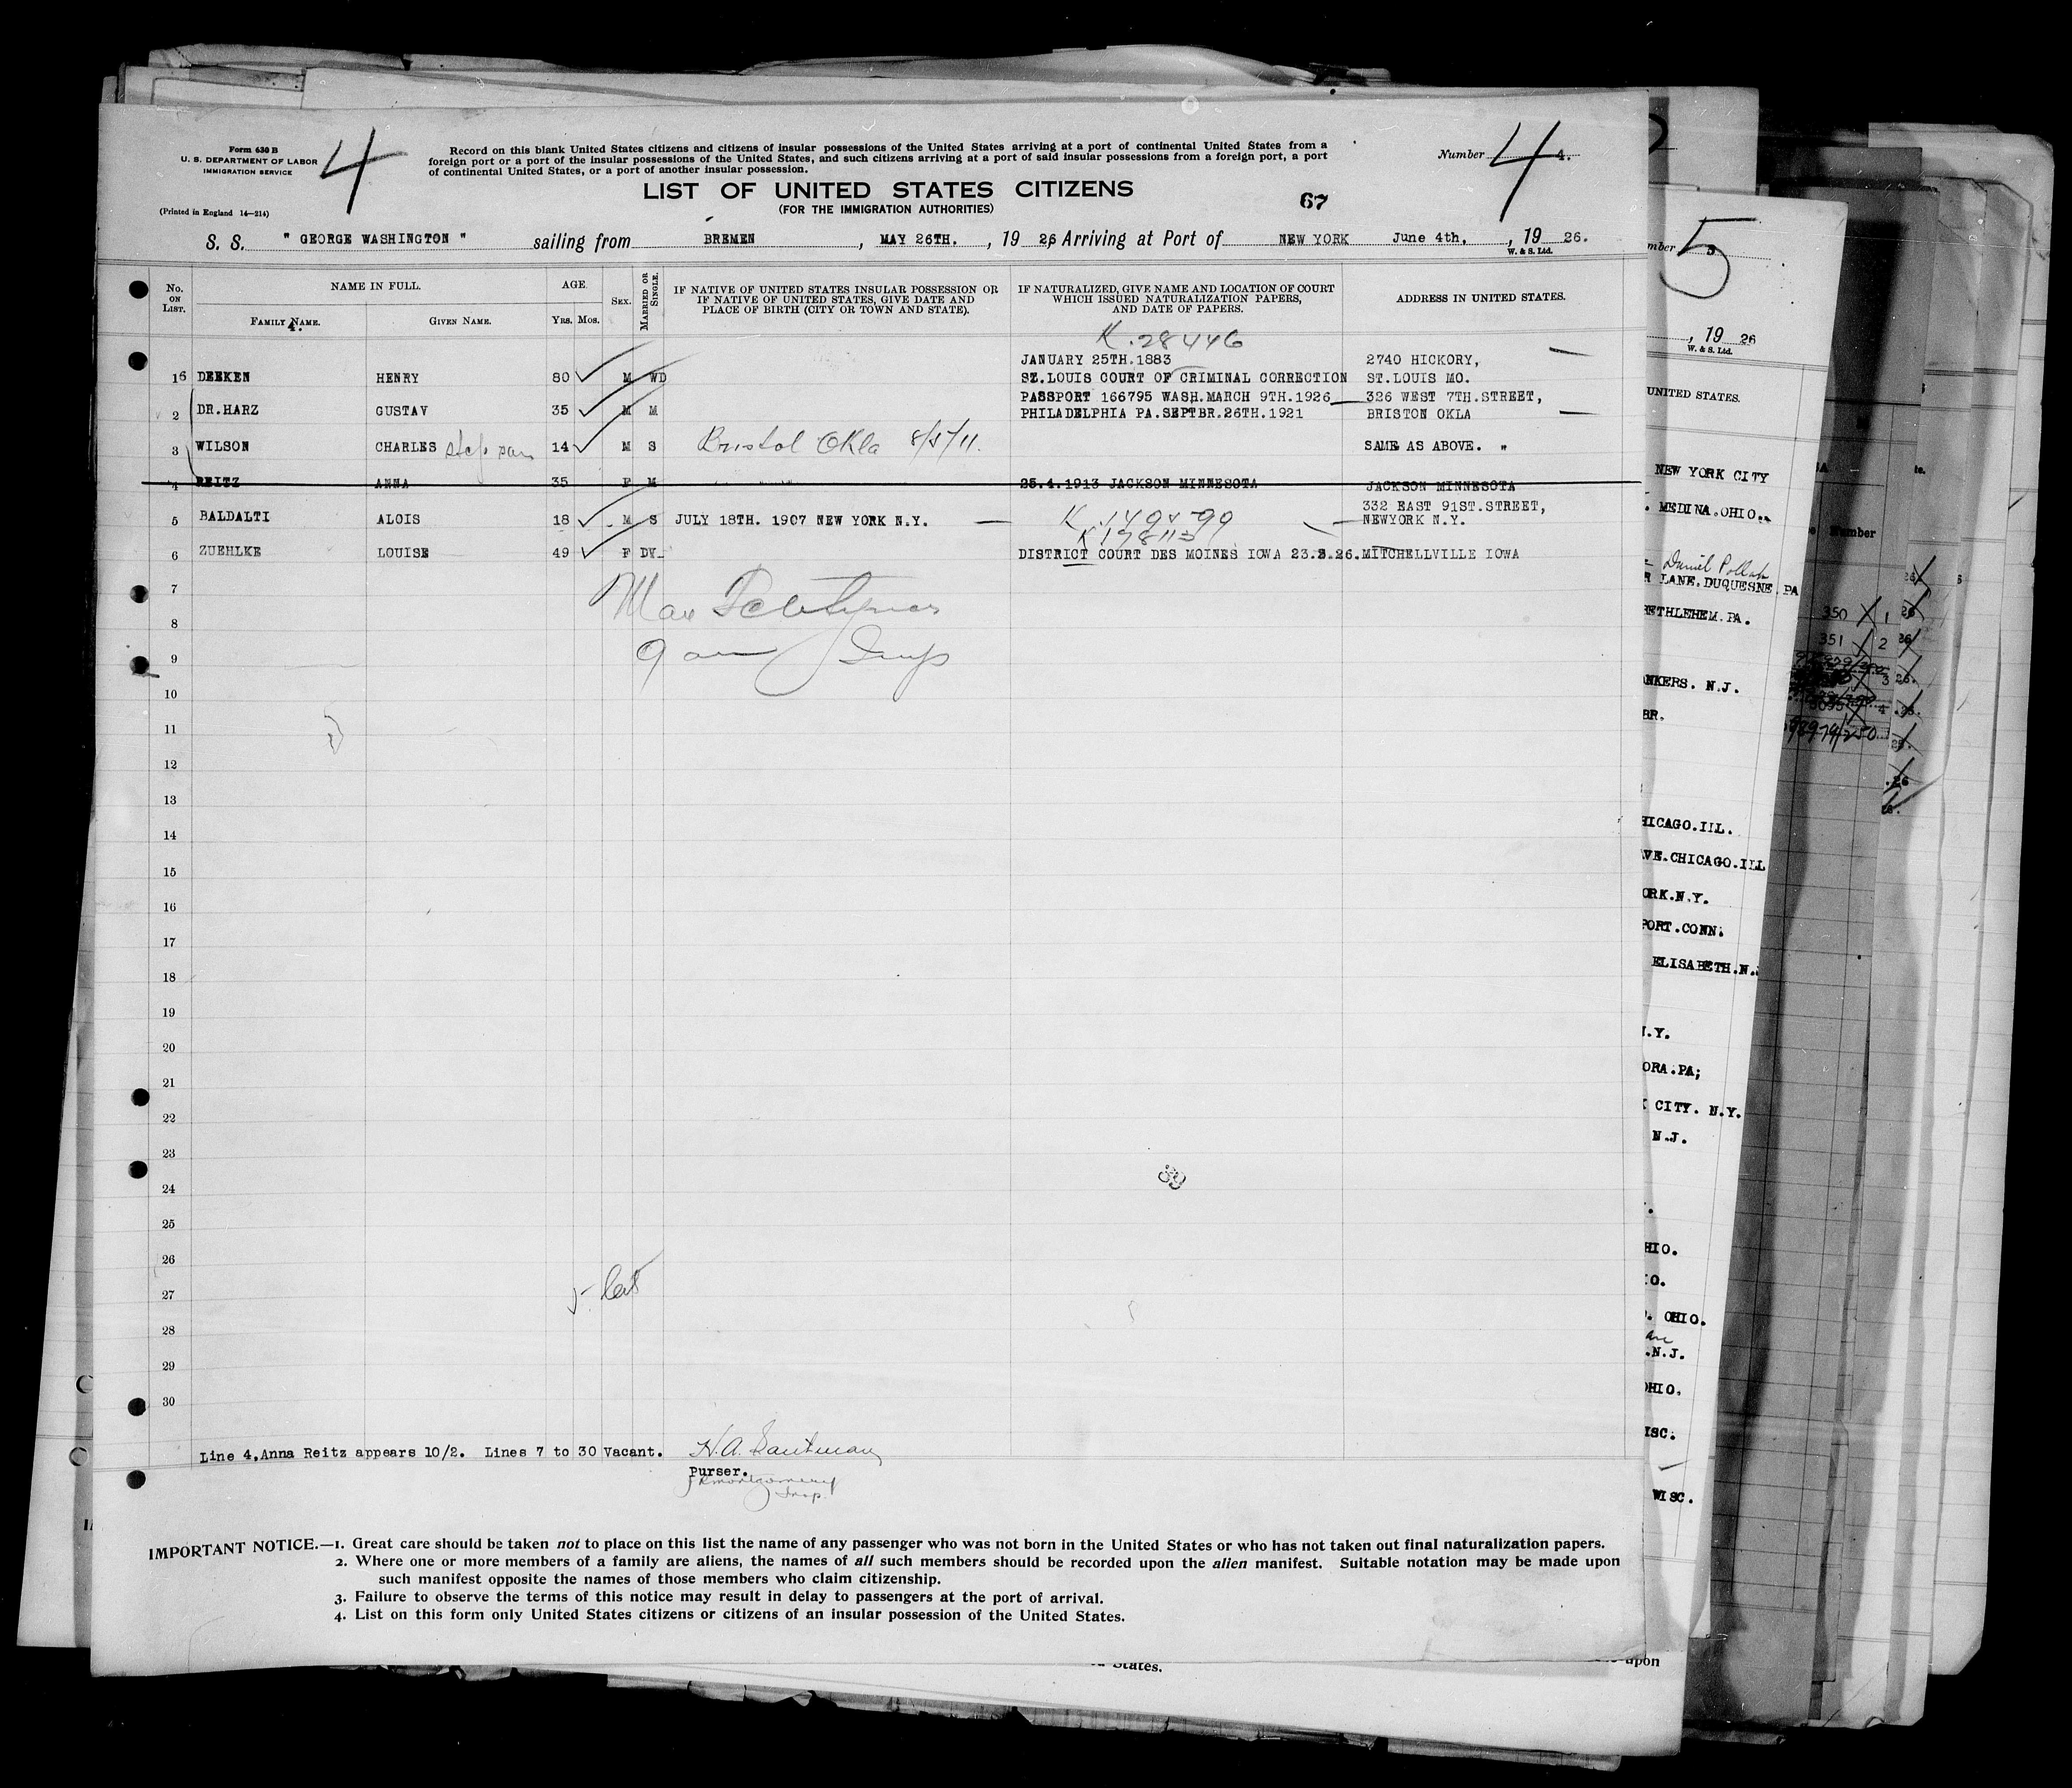 Form 630 B
U. S. DEPARTMENT OF LABOR
IMMIGRATION SERVICE
(Printed in England 14—214)
4
Record on this blank United States citizens and citizens of insular possessions of the United States arriving at a port of continental United States from a
foreign port or a port of the insular possessions of the United States, and such citizens arriving at a port of said insular possessions from a foreign port, a port
of continental United States, or a port of another insular possession.
Number 4 4.
LIST OF UNITED STATES CITIZENS
(FOR THE IMMIGRATION AUTHORITIES)
67
S. S. " GEORGE WASHINGTON " sailing from BREMEN , MAY 26TH. , 19 26, Arriving at Port of NEW YORK June 4th. , 19 26.
W. & S. Ltd.
No. ON LIST. NAME IN FULL. FAMILY NAME. GIVEN NAME. AGE. YRS. MOS. SEX. MARRIED OR SINGLE.
IF NATIVE OF UNITED STATES INSULAR POSSESSION OR
IF NATIVE OF UNITED STATES, GIVE DATE AND
PLACE OF BIRTH (CITY OR TOWN AND STATE).
IF NATURALIZED, GIVE NAME AND LOCATION OF COURT
WHICH ISSUED NATURALIZATION PAPERS,
AND DATE OF PAPERS.
ADDRESS IN UNITED STATES.
K.28446
JANUARY 25TH.1883 2740 HICKORY,
16 DEEKEN HENRY 80 M WD SZ.LOUIS COURT OF CRIMINAL CORRECTION ST.LOUIS MO.
PASSPORT 166795 WASH.MARCH 9TH.1926 326 WEST 7TH.STREET,
2 DR.HARZ GUSTAV 35 M M PHILADELPHIA PA.SEPTBR.26TH.1921 BRISTON OKLA
3 WILSON CHARLES step son 14 M S Bristol Okla 8/5/11. SAME AS ABOVE. "
4 REITZ ANNA 35 F M 25.4.1913 JACKSON MINNESOTA JACKSON MINNESOTA
332 EAST 91ST.STREET,
5 BALDALTI ALOIS 18 M S JULY 18TH. 1907 NEW YORK N.Y. NEWYORK N.Y.
K 198113
6 ZUEHLKE LOUISE 49 F DV. DISTRICT COURT DES MOINES IOWA 23.2.26. MITCHELLVILLE IOWA
7
Max
8
9
Insp
10
11
12
13
14
15
16
17
18
19
20
21
22
23
24
25
26
27
28
29
30
Line 4,Anna Reitz appears 10/2. Lines 7 to 30 Vacant.
Purser.
JRMontgomery
Insp.
IMPORTANT NOTICE.—1. Great care should be taken not to place on this list the name of any passenger who was not born in the United States or who has not taken out final naturalization papers.
2. Where one or more members of a family are aliens, the names of all such members should be recorded upon the alien manifest. Suitable notation may be made upon
such manifest opposite the names of those members who claim citizenship.
3. Failure to observe the terms of this notice may result in delay to passengers at the port of arrival.
4. List on this form only United States citizens or citizens of an insular possession of the United States.
5
, 19 26
W. & S. Ltd.
UNITED STATES.
NEW YORK CITY
MEDINA.OHIO.
Daniel Pollak
LANE.DUQUESNE.PA
ETHLEHEM.PA.
NKERS. N.J.
BR.
HICAGO.ILL.
VE.CHICAGO.ILL
ORK.N.Y.
PORT.CONN.
ELISABETH.N.
N.Y.
ORA.PA;
CITY. N.Y.
N.J.
HIO.
IO.
OHIO.
N.J.
OHIO.
ISC.
WISC.
Number
350 1
351 2
3
4
States.
upon